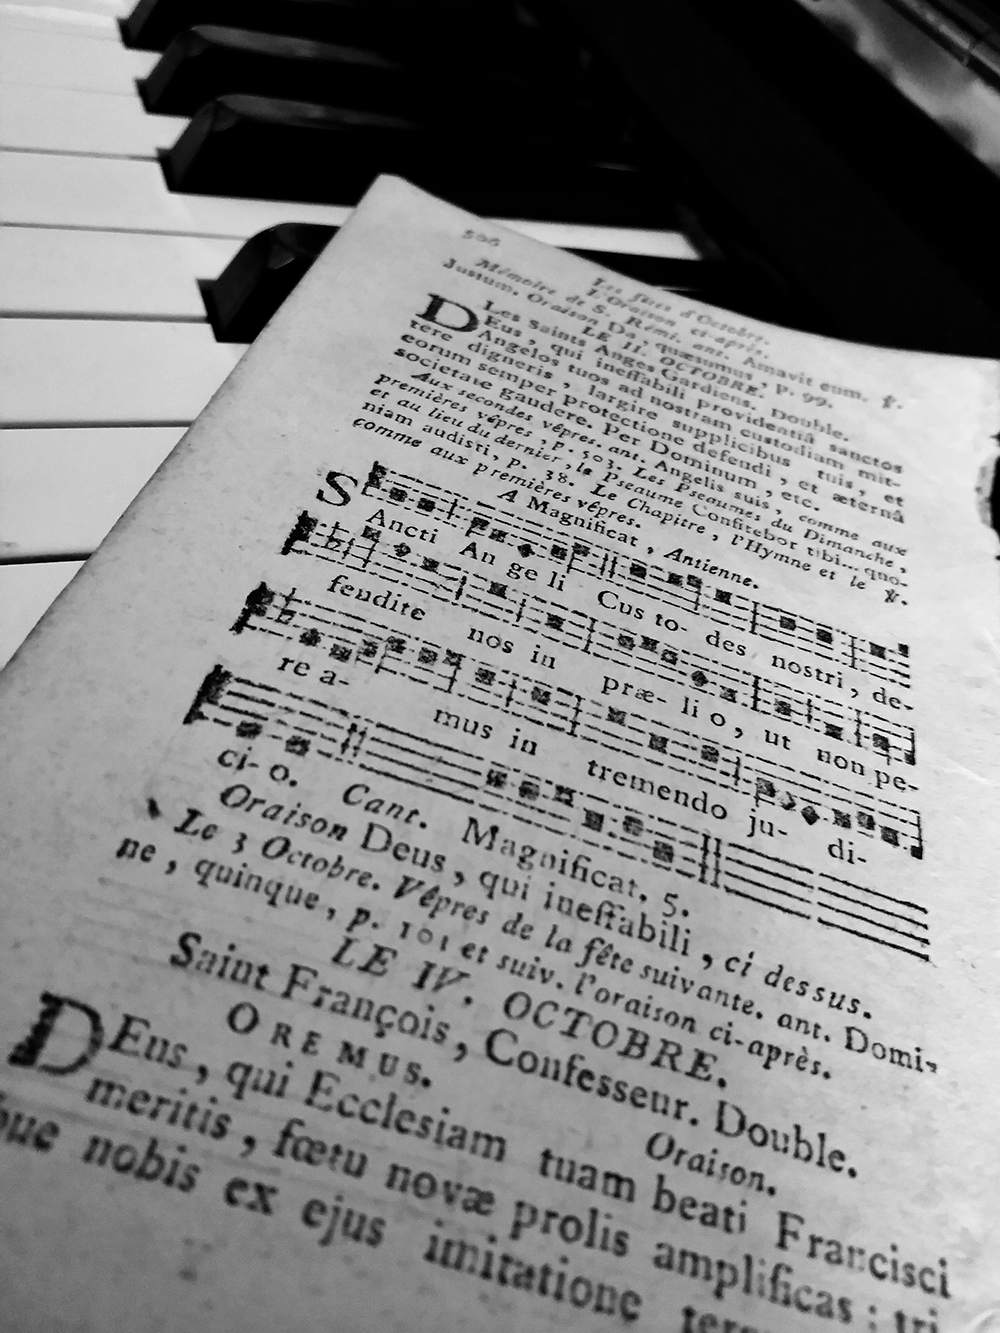 506
Les fêtes d'Octobre.
l'Oraison ci-après.
Mémoire de S. Rémi. ant. Amavit eum. ℣.
Justum. Oraison Da, quæsumus, p. 99.
LE II. OCTOBRE.
Les Saints Anges Gardiens. Double.
DEus, qui ineffabili providentiâ sanctos
Angelos tuos ad nostram custodiam mit-
tere digneris, largire supplicibus tuis, et
eorum semper protectione defendi, et æternâ
societate gaudere. Per Dominum, etc.
Aux secondes vêpres. ant. Angelis suis, comme aux
premières vêpres, p. 503. Les Pseaumes du Dimanche,
et au lieu du dernier, le Pseaume Confitebor tibi... quo-
niam audisti, p. 38. Le Chapitre, l'Hymne et le ℣.
comme aux premières vêpres.
A Magnificat, Antienne.
SAncti An ge li Cus to- des nostri, de-
fendite nos in præ- li o, ut non pe-
re a- mus in tremendo ju- di-
ci- o. Cant. Magnificat. 5.
Oraison Deus, qui ineffabili, ci dessus.
Le 3 Octobre. Vêpres de la fête suivante. ant. Domi-
ne, quinque, p. 101 et suiv. l'oraison ci-après.
LE IV. OCTOBRE.
Saint François, Confesseur. Double.
OREMUS. Oraison.
DEus, qui Ecclesiam tuam beati Francisci
meritis, fœtu novæ prolis amplificas : tri
bue nobis ex ejus imitatione